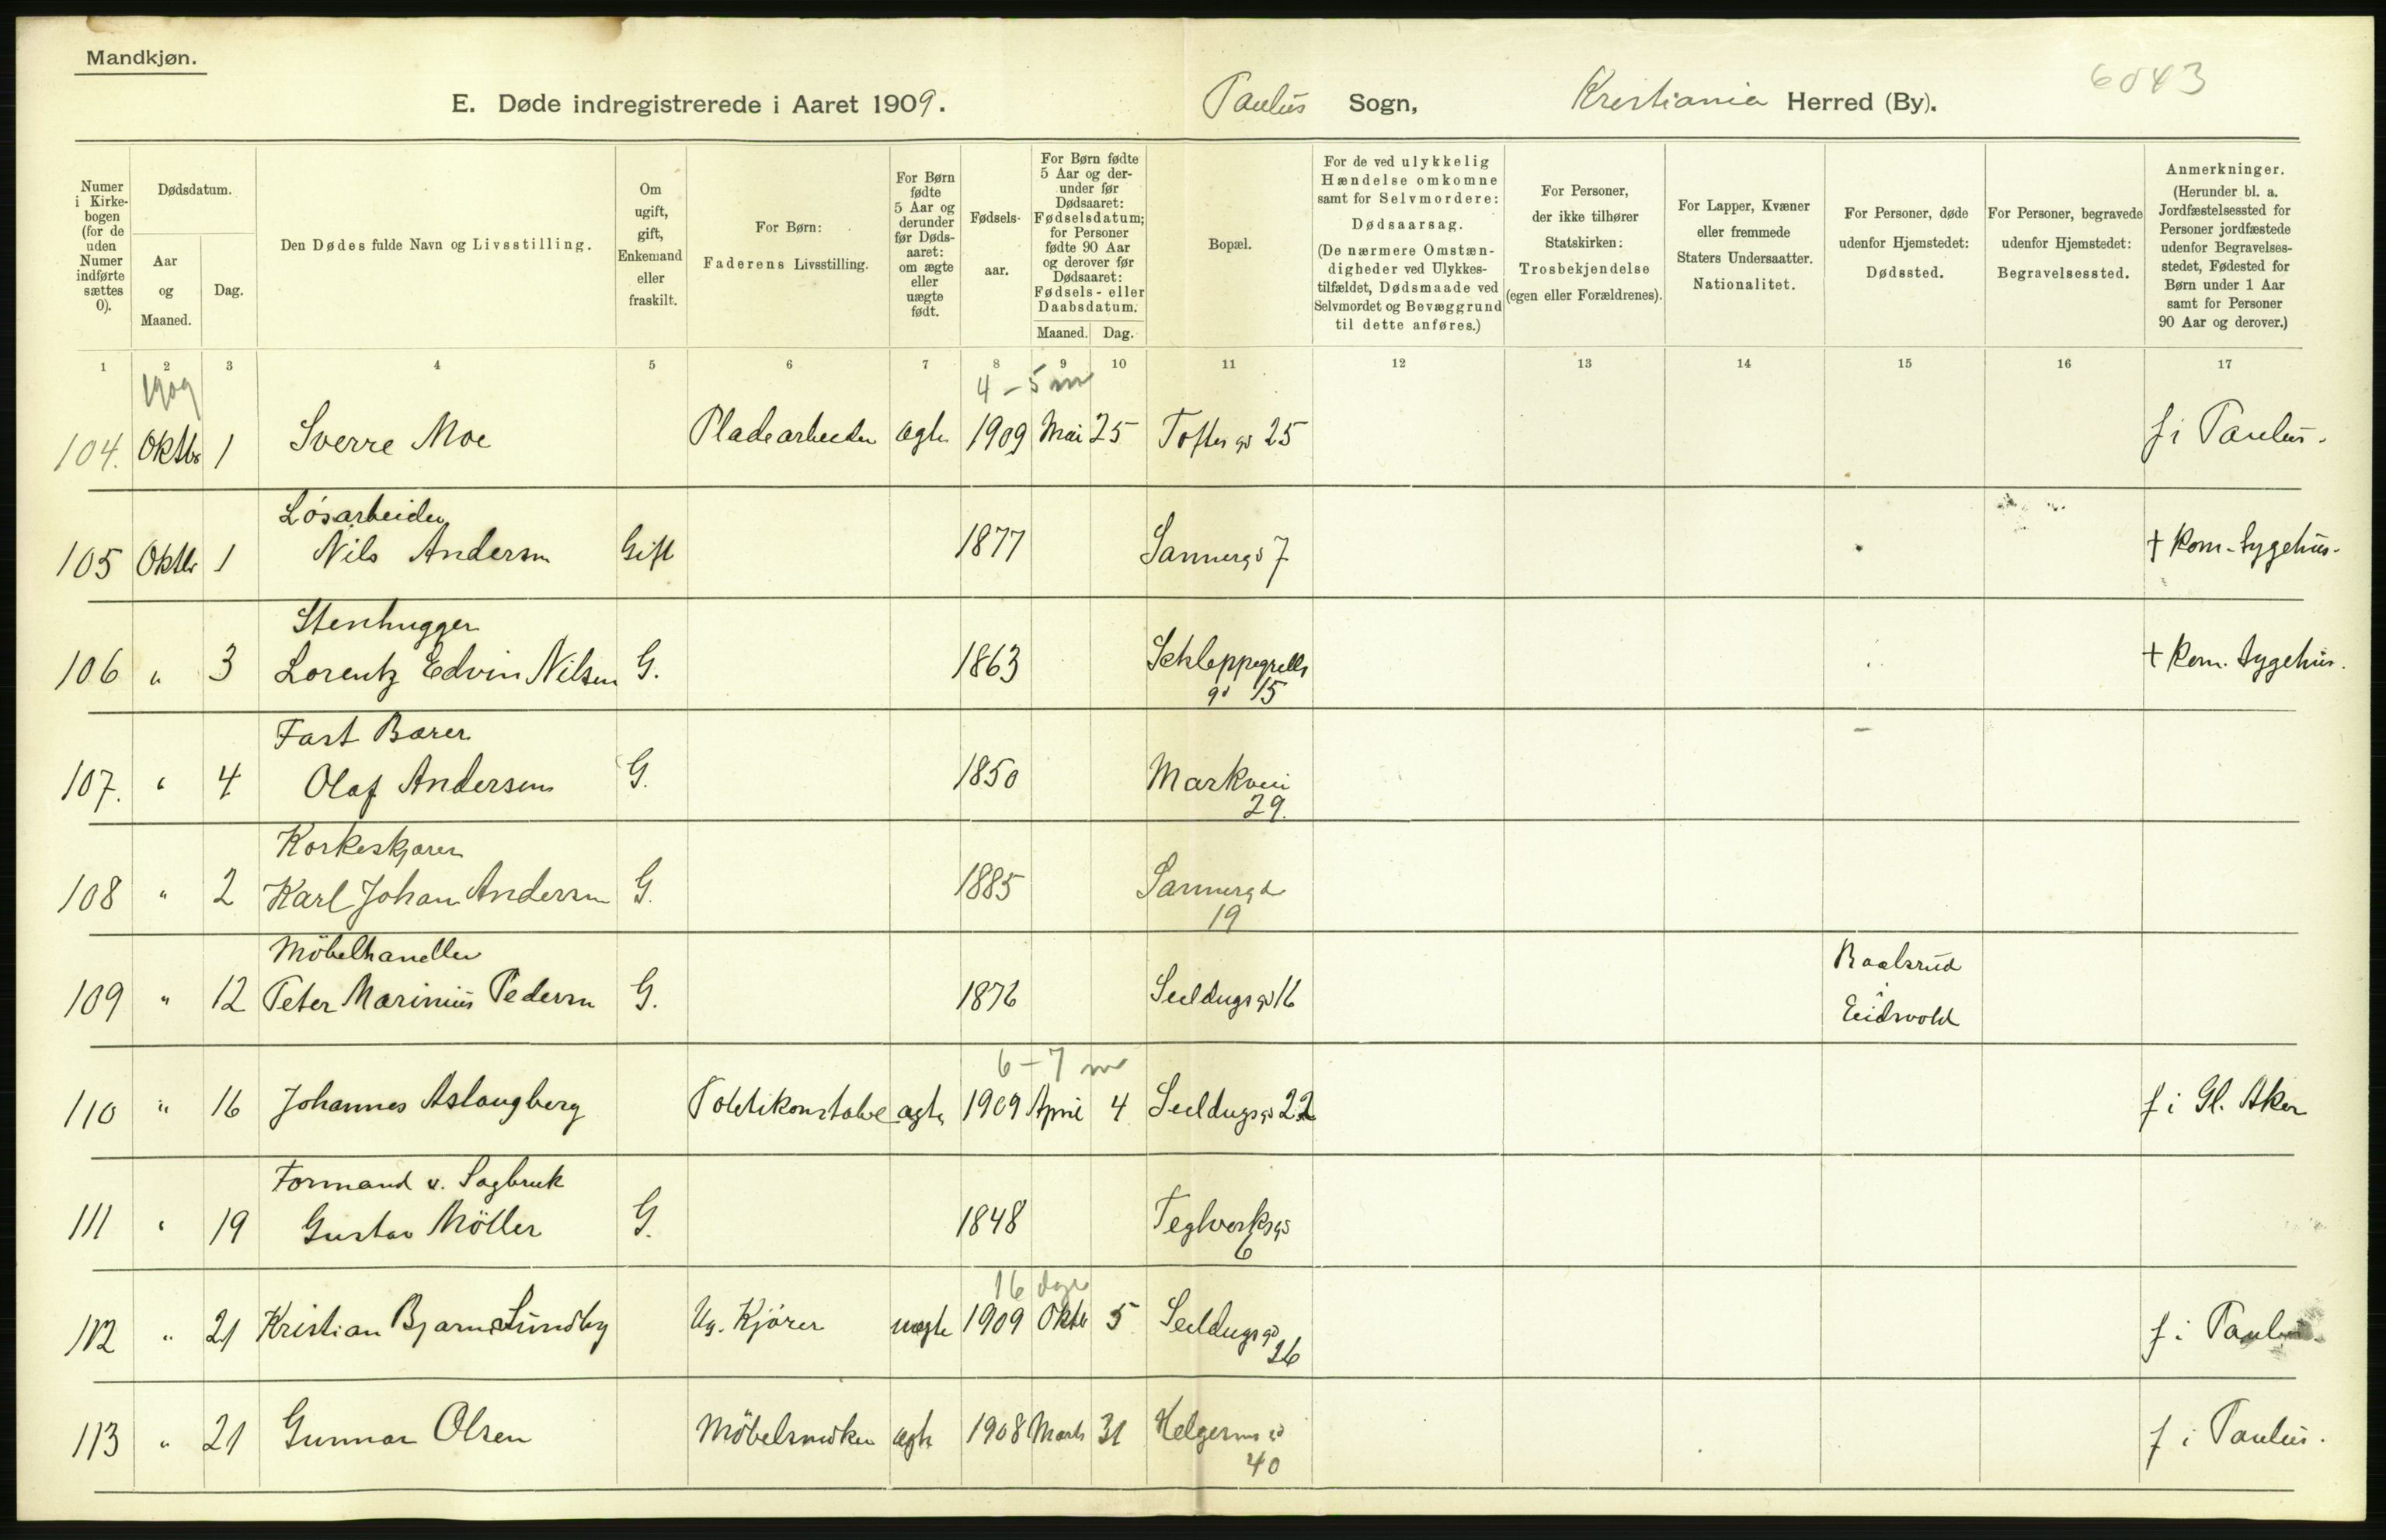 Mandkjøn.
6043
E. Døde indregistrerede i Aaret 1909. Paulus Sogn, Kristiania Herred (By).
Numer i Kirke-
bogen
(for de
uden
Numer
indførte
sættes
0).
Dødsdatum.
Aar
og
Maaned.
Dag.
Den Dødes fulde Navn og Livsstilling.
Om
ugift,
gift,
Enkemand
eller
fraskilt.
For Børn:
Faderens Livsstilling.
For Børn
fødte
5 Aar og
derunder
før Døds-
aaret:
om ægte
eller
uægte
født.
Fødsels-
aar.
For Børn fødte
5 Aar og der-
under før
Dødsaaret:
Fødselsdatum;
for Personer
fødte 90 Aar
og derover før
Dødsaaret:
Fødsels- eller
Daabsdatum.
Maaned. Dag.
Bopæl.
For de ved ulykkelig
Hændelse omkomne
samt for Selvmordere:
Dødsaarsag.
(De nærmere Omstæn-
digheder ved Ulykkes-
tilfældet, Dødsmaade ved
Selvmordet og Bevæggrund
til dette anføres.)
For Personer,
der ikke tilhører
Statskirken:
Trosbekjendelse
(egen eller Forældrenes).
For Lapper, Kvæner
eller fremmede
Staters Undersaatter.
Nationalitet.
For Personer, døde
udenfor Hjemstedet:
Dødssted.
For Personer, begravede
udenfor Hjemstedet:
Begravelsessted.
Anmerkninger.
(Herunder bl. a.
Jordfæstelsessted for
Personer jordfæstede
udenfor Begravelses-
stedet, Fødested for
Børn under 1 Aar
samt for Personer
90 Aar og derover.)
1 2 3 4 5 6 7 8 9 10 11 12 13 14 15 16 17
1909 4 - 5 m
104. Oktbr 1 Sverre Moe Pladearbeider ægte 1909 Mai 25 Toftes gd 25 f i Paulus.
Løsarbeider
105 Oktbr 1 Nils Andersen Gift 1877 Sannergd 7 + Kom. Sygehus.
Stenhugger
106 " 3 Lorentz Edvin Nilsen G. 1863 Schleppegrells + Kom. Sygehus.
gd 15
Fast Bærer
107. " 4 Olaf Andersen G. 1850 Markvei
29.
Korkeskjærer
108 " 2 Karl Johan Andersen G. 1885 Sannergd
19
Möbelhandler Raalsrud
109 " 12 Peter Marinius Pedersen G. 1876 Seildugsgd 16 Eidsvold
6 - 7 m
110 " 16 Johannes Aslaugberg Politikonstabel ægte 1909 April 4 Seildugsgd 22 f i Gl. Aker
Formand v. Sagbruk
111 " 19 Gustav Möller G. 1848 Teglverksgd
6
16 dage
112 " 21 Kristian Bjarne Lundby Ug. Kjører uægte 1909 Oktb 5 Seildugsgd f i Paulus.
26
113 " 21 Gunnar Olsen Möbelsnedker ægte 1908 Marts 31 Helgesensgd f i Paulus.
40